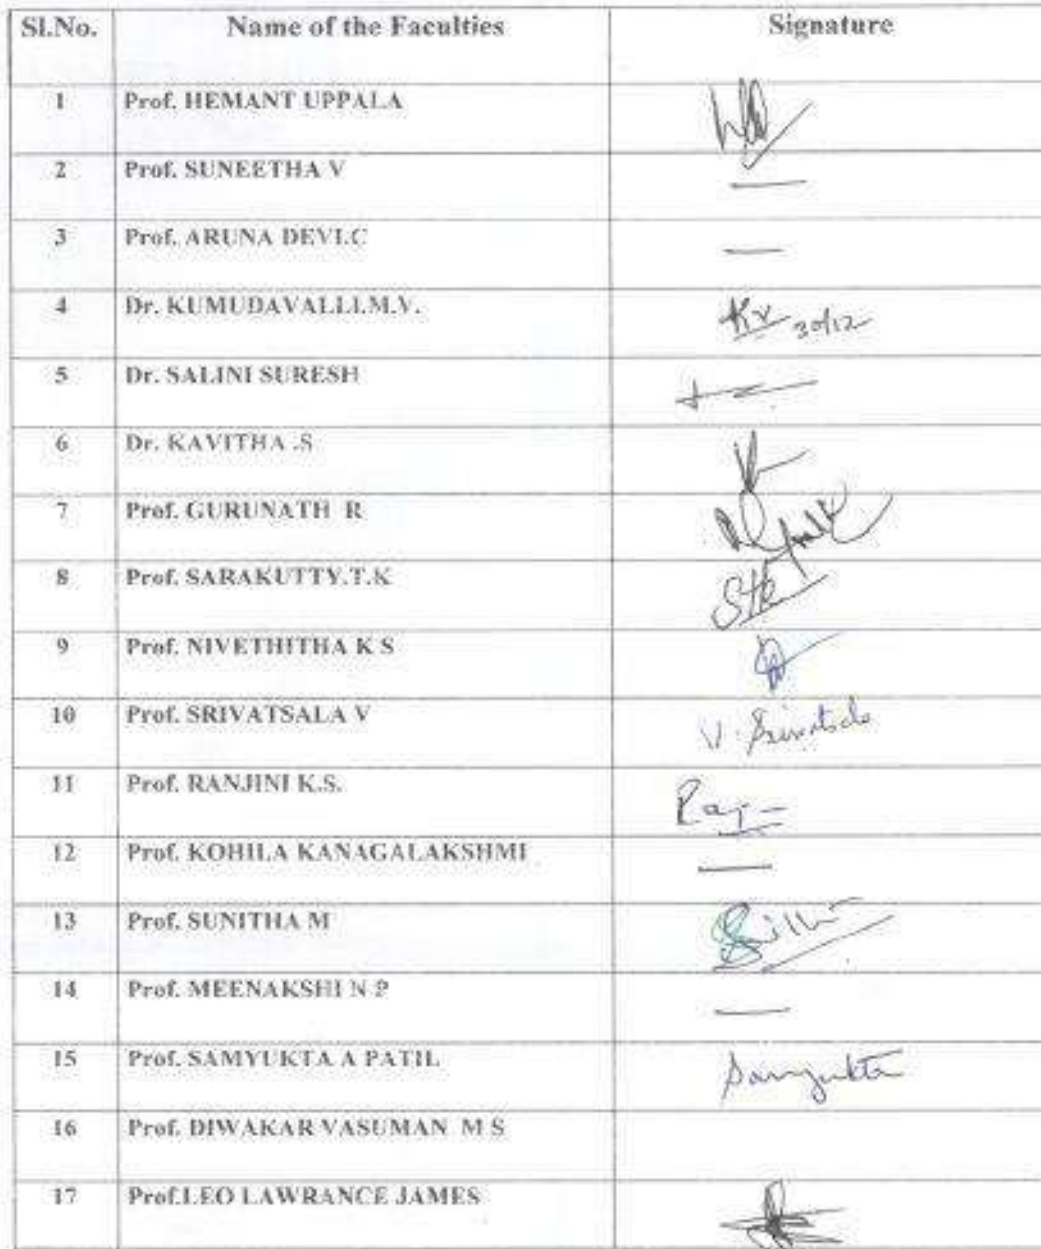 Sl.No. Name of the Faculties Signature
1 Prof. HEMANT UPPALA
2 Prof. SUNEETHA V —
3 Prof. ARUNA DEVI.C —
4 Dr. KUMUDAVALLI.M.V. Kv 30/12
5 Dr. SALINI SURESH
6 Dr. KAVITHA .S
7 Prof. GURUNATH R
8 Prof. SARAKUTTY.T.K
9 Prof. NIVETHITHA K S
10 Prof. SRIVATSALA V V. Srivatsala
11 Prof. RANJINI K.S.
12 Prof. KOHILA KANAGALAKSHMI —
13 Prof. SUNITHA M
14 Prof. MEENAKSHI N P —
15 Prof. SAMYUKTA A PATIL Samyukta
16 Prof. DIWAKAR VASUMAN M S
17 Prof.LEO LAWRANCE JAMES